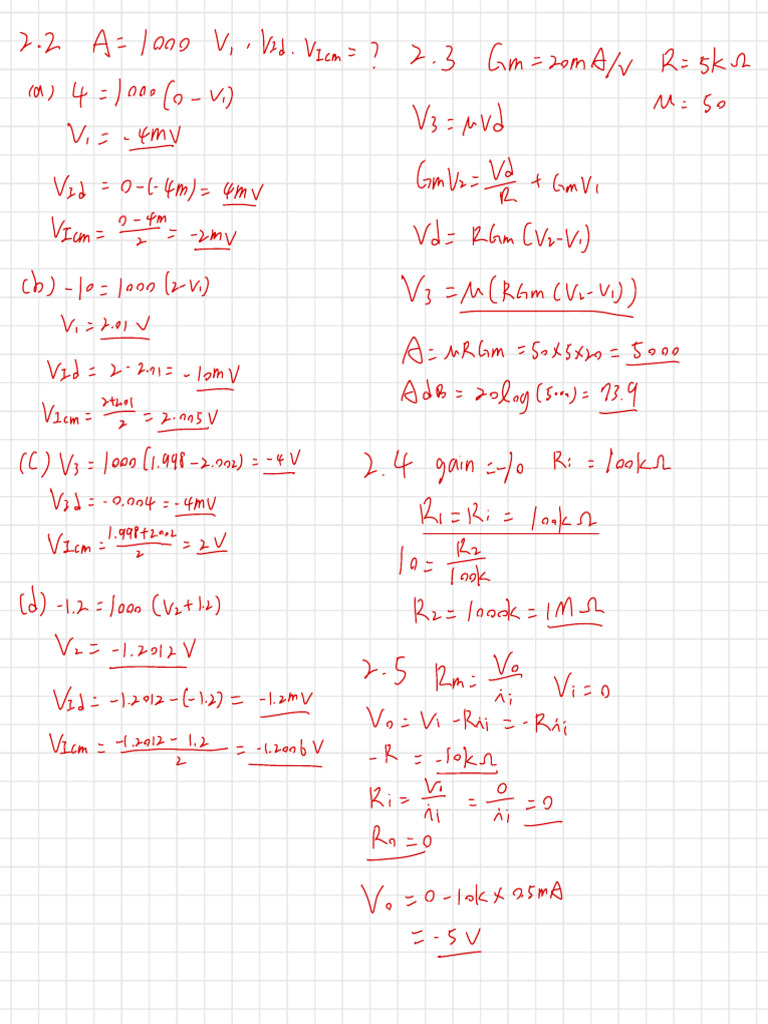 2.2 A = 1000 V₁, V₂d. V_Icm = ?
(a) 4 = 1000(0 - V₁)
V₁ = -4mV
V_Id = 0-(-4m) = 4mV
V_Icm = (0-4m)/2 = -2mV
(b) -10 = 1000(2-V₁)
V₁ = 2.01 V
V_Id = 2 - 2.01 = -10mV
V_Icm = (2+2.01)/2 = 2.005V
(C) V₃ = 1000(1.998-2.002) = -4V
V₃d = -0.004 = -4mV
V_Icm = (1.998+2.002)/2 = 2V
(d) -1.2 = 1000 (V₂+1.2)
V₂ = -1.2012 V
V_Id = -1.2012-(-1.2) = -1.2mV
V_Icm = (-1.2012-1.2)/2 = -1.2006V
2.3 Gm = 20mA/V R = 5kΩ
μ = 50
V₃ = μVd
GmV₂ = Vd/R + GmV₁
Vd = RGm(V₂-V₁)
V₃ = μ(RGm(V₂-V₁))
A = μRGm = 50×5×20 = 5000
AdB = 20log(5000) = 73.9
2.4 gain = -10 Ri = 100kΩ
R₁ = Ri = 100kΩ
10 = R₂/100k
R₂ = 1000k = 1MΩ
2.5 Rm = Vo/ii Vi = 0
Vo = Vi - Rii = -Rii
-R = -10kΩ
Ri = Vi/ii = 0/ii = 0
Ro = 0
Vo = 0-10k × 0.5mA
= -5V